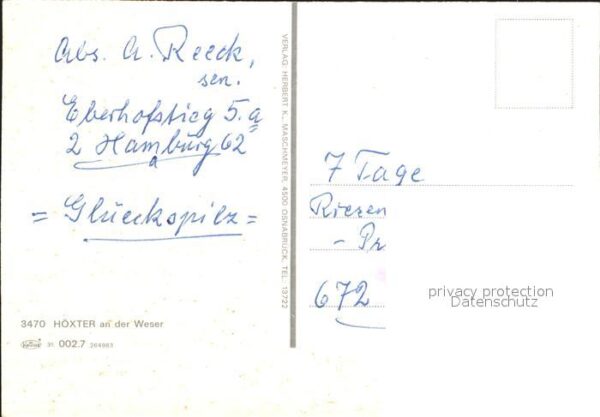 Abs. A. Reeck,
sen.
Eberhofstieg 5.a
2 Hamburg 62
= Glückspilz =
3470 HÖXTER an der Weser
31 002.7 264963
VERLAG: HERBERT K. MASCHMEYER, 4500 OSNABRÜCK, TEL. 13722
7 Tage
Riesen
- Pr
672
privacy protection
Datenschutz